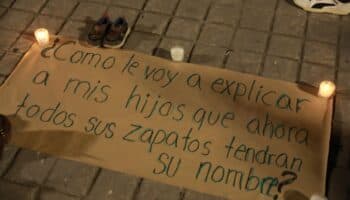 ¿Como le voy a explicar
a mis hijas que ahora
todos sus zapatos tendran
su nombre?